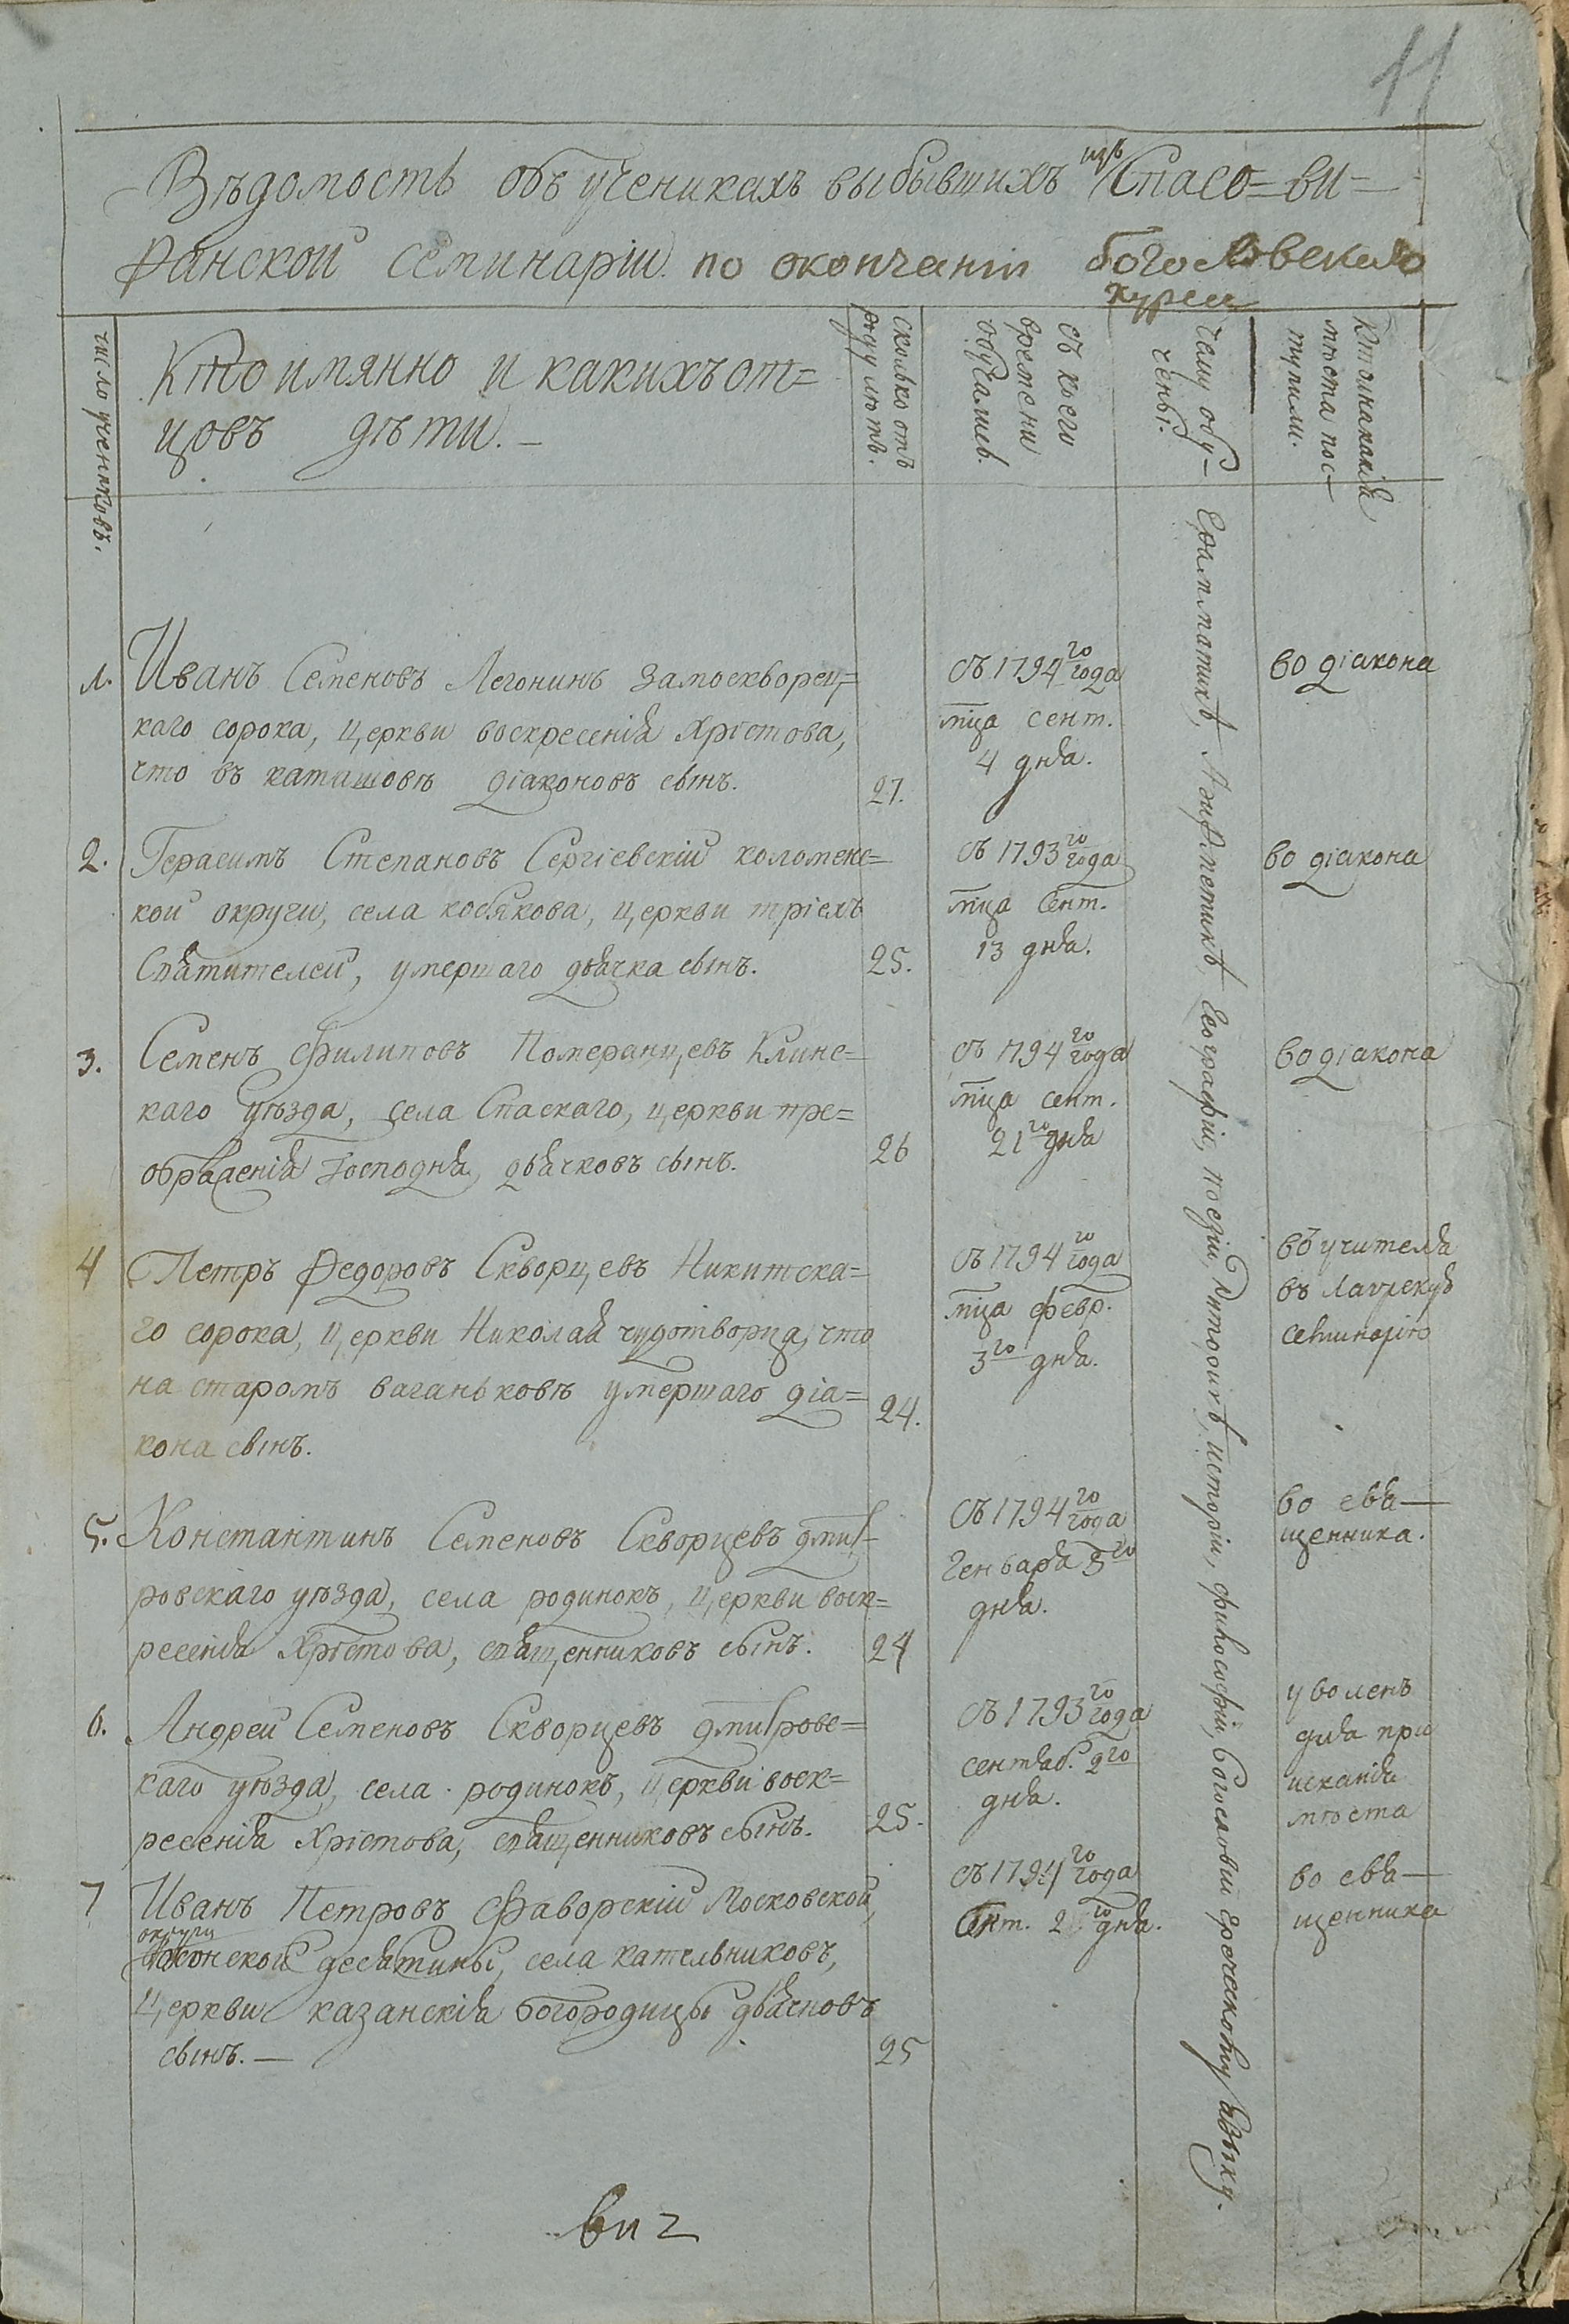 11
Вѣдомость объ ученикахъ выбывшихъ изъ Спасо=ви=
ѳанской семинаріи по окончаніи богословскаго
курса
число учениковъ.
Кто имянно и какихъ от=
цовъ дѣти. –
сколько отъ
роду лѣтъ.
съ коего
времени
обучались.
чему обу-
чены.
Кто на какія
мѣста пос-
тупили.
Грамматикѣ, Арифметикѣ, Географіи, поезіи, Риторикѣ, исторіи, философіи, богословіи Греческому языку.
1. Иванъ Семеновъ Легонинъ замоскворец=
каго сорока, церкви воскресенія Хрістова,
что въ каташовѣ діаконовъ сынъ.
27.
съ 1794го года
мца сент.
4 дня.
во діакона
2. Герасимъ Степановъ Сергіевскій коломенс=
кой округи, села косякова, церкви тріехъ
Святителей, умершаго дьячка сынъ.
25.
съ 1793го года
мца Сент.
13 дня.
во діакона
3. Семенъ Филиповъ Померанцевъ Клинс=
каго уѣзда, села Спаскаго, церкви пре=
ображенія Господня, дьячковъ сынъ.
26
съ 1794го года
мца сент.
21го дня
во діакона
4 Петръ Ѳедоровъ Скворцевъ Никитска=
го сорока, церкви Николая чудотворца, что
на старомъ ваганьковѣ умершаго діа=
кона сынъ.
24.
съ 1794го года
мца февр.
3го дня.
въ учителя
въ Лаврскую
семинарію
5. Константинъ Семеновъ Скворцевъ дмит-
ровскаго уѣзда, села родинокъ, церкви воск=
ресенія Хрістова, священниковъ сынъ.
24
съ 1794го года
Генваря 5го
дня.
во свя–
щенника.
6. Андрей Семеновъ Скворцевъ дмитровс=
каго уѣзда, села родинокъ, церкви воск=
ресенія Хрістова, священниковъ сынъ.
25.
съ 1793го года
сентяб. 2го
дня.
уволенъ
для прі
исканія
мѣста
7 Иванъ Петровъ Фаворскій Московской
округи
десятины, села кательниковъ,
церкви казанскія богородицы дьячковъ
сынъ. –
25
съ 1794го года
Сент. 2го дня.
во свя–
щенника